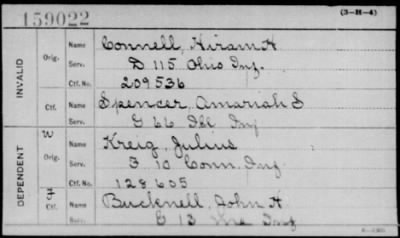 159022
(3-H-4)
INVALID
Orig.
Name Connell, Hiram H
Serv. D 115 Ohio Inf.
Ctf. No. 209536
Ctf.
Name Spencer, Amariah S
Serv. G 66 Ill Inf
DEPENDENT
W
Orig.
Name Kreig, Julius
Serv. F 10 Conn. Inf.
Ctf. No. 128,605
Ctf.
Name Bucknell, John H
Serv. C 13 Inf